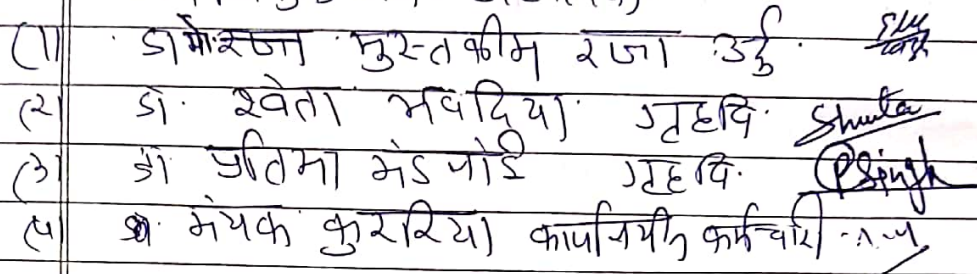 (1) डॉ मो. रजा मुस्तकीम रजा उर्दू.
(२) डॉ. श्वेता भवदिया गृहवि. Shweta
(३) डॉ प्रतिमा गृहवि. PSingh
(५) मंयक कुररिया कर्मचारी